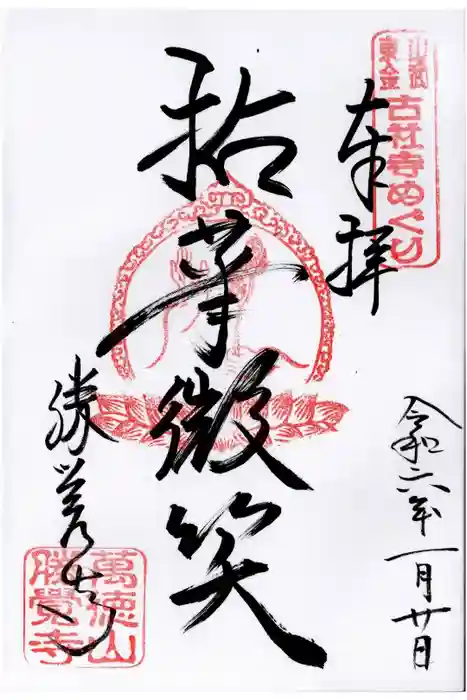 山武
東金
古社寺めぐり
奉拝
拈華微笑
勝覚寺
萬徳山
勝覺寺
令和六年一月廿日